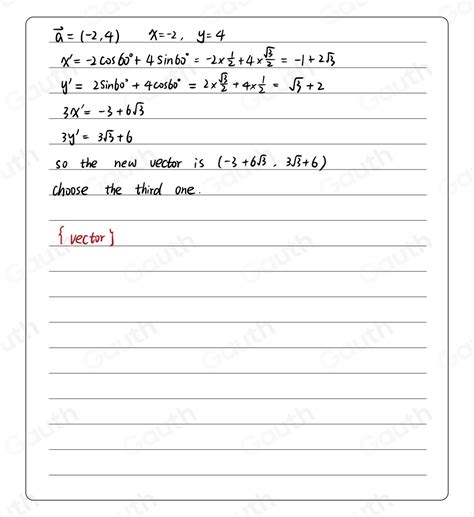 a⃗ = (-2, 4) x=-2, y=4
x' = -2 cos60° + 4 sin60° = -2×1/2 + 4×√3/2 = -1+2√3
y' = 2sin60° + 4cos60° = 2×√3/2 + 4×1/2 = √3 + 2
3x' = -3+6√3
3y' = 3√3+6
so the new vector is (-3+6√3, 3√3+6)
choose the third one.
{vector}
Gauth